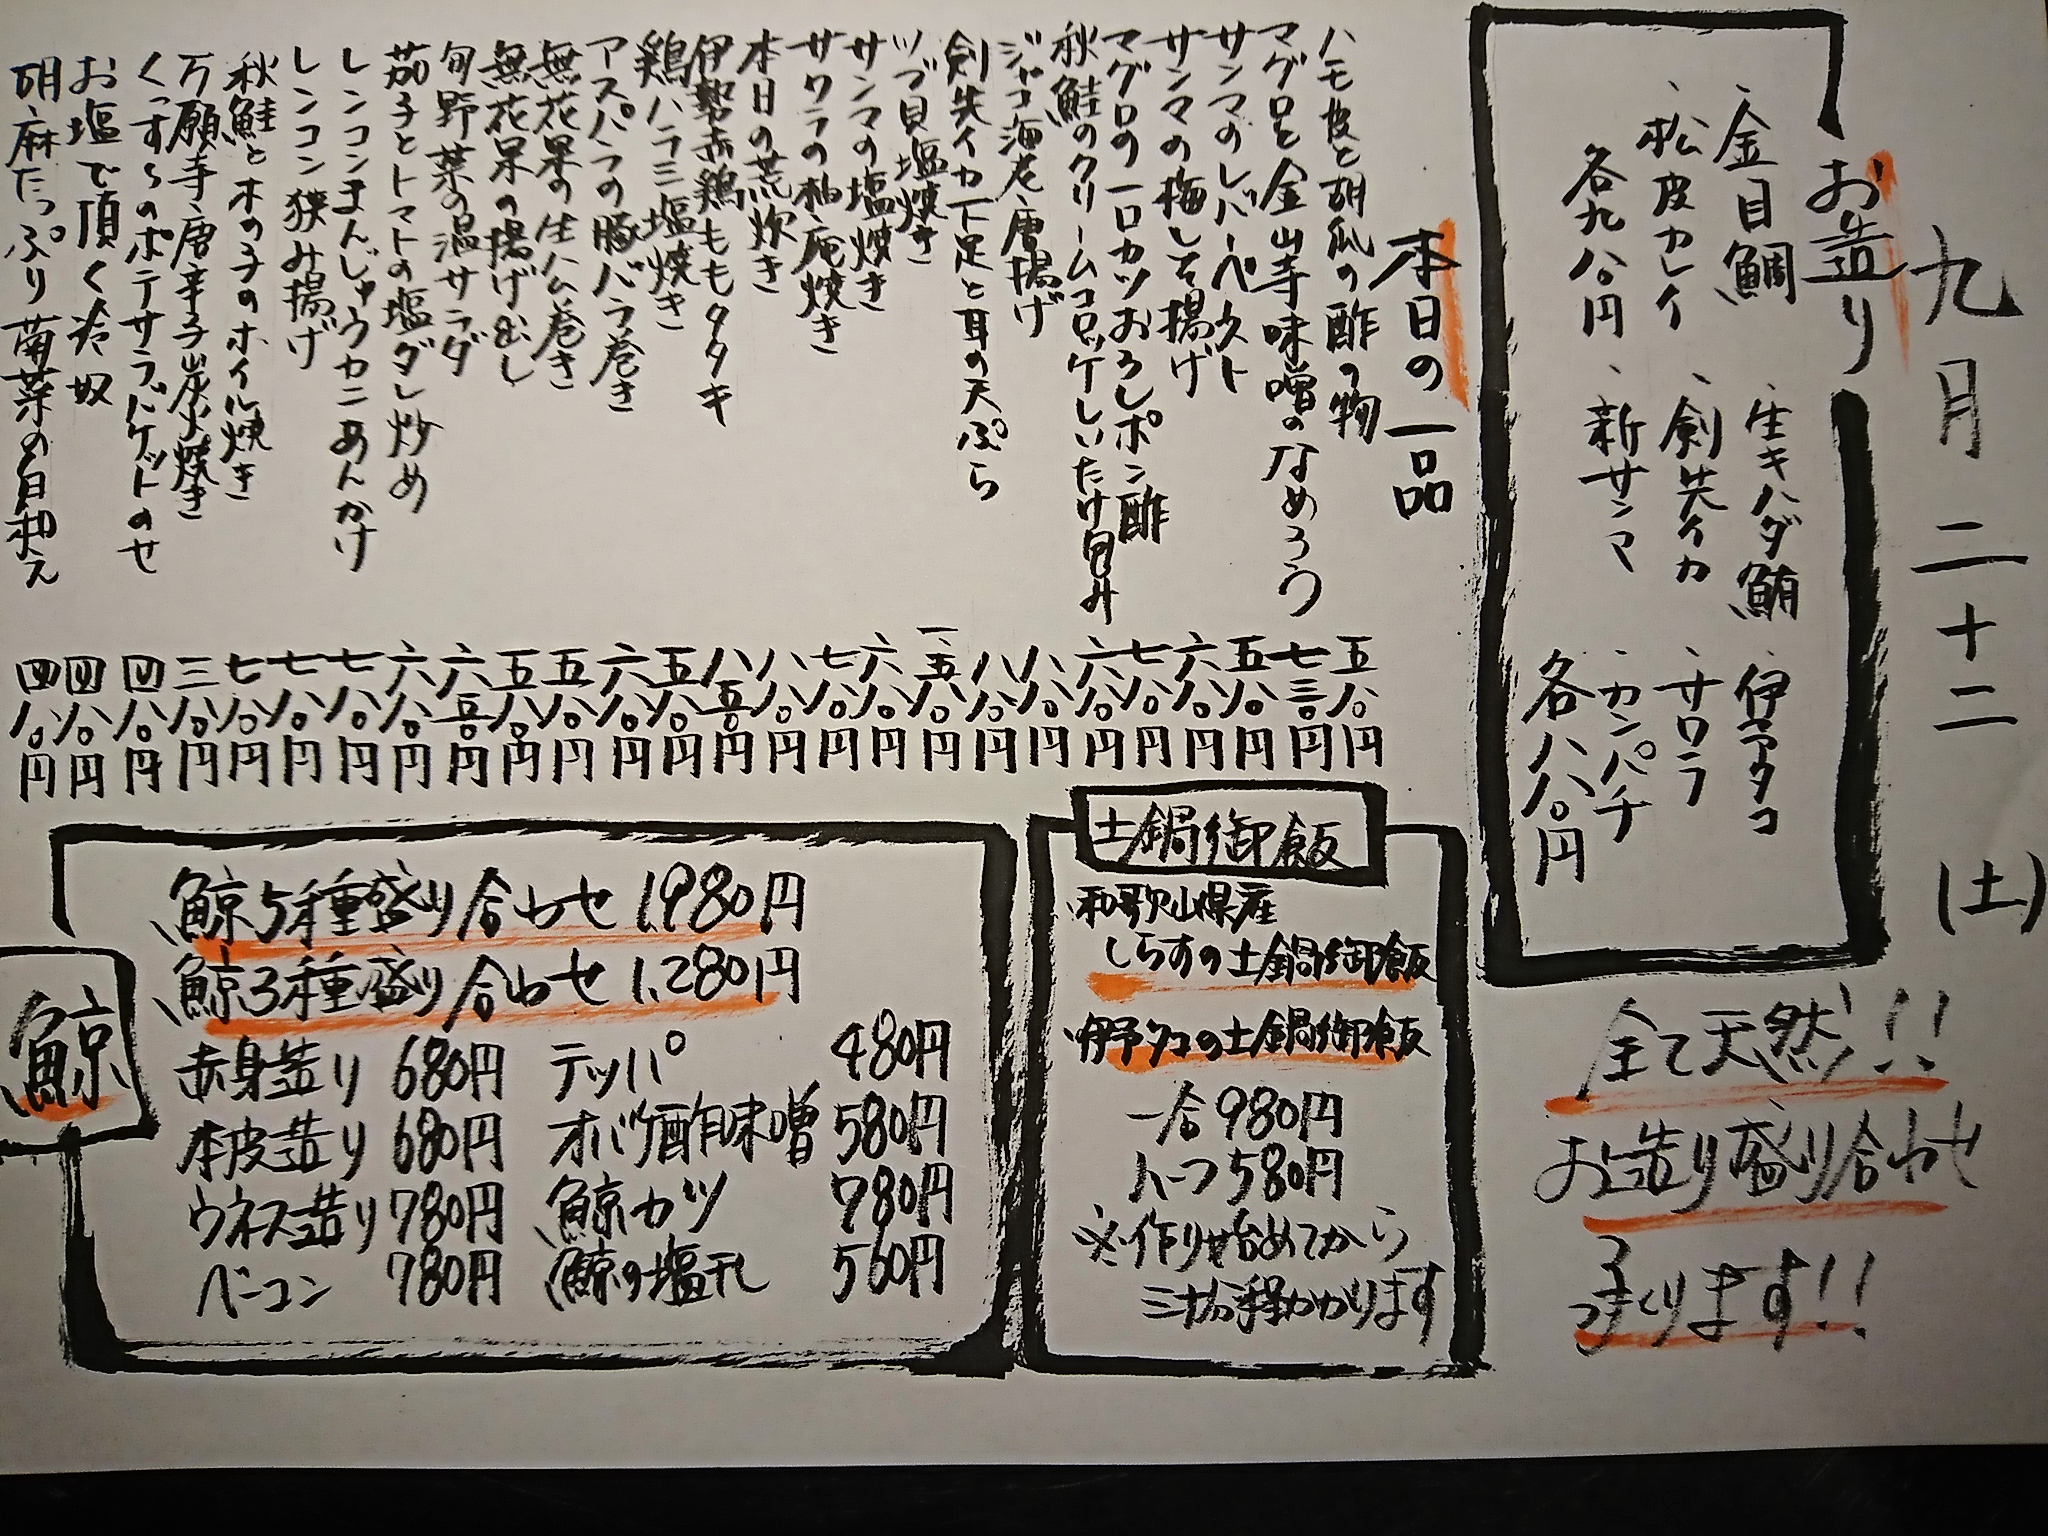 九月二十二(土)
お造り
、金目鯛
、松皮カレイ
各九八〇円
、生キハダ鮪
、剣先イカ
、新サンマ
、伊予タコ
、サワラ
、カンパチ
各八八〇円
全て天然!!
お造り盛り合わせ
つくります!!
本日の一品
ハモ皮と胡瓜の酢の物 五八〇円
マグロと金山寺味噌のなめろう 七三〇円
サンマのレバーペースト 五八〇円
サンマの梅しそ揚げ 六八〇円
マグロの一口カツおろしポン酢 七八〇円
秋鮭のクリームコロッケしいたけ包み 六八〇円
ジャコ海老唐揚げ 八八〇円
剣先イカ下足と耳の天ぷら 八八〇円
ツブ貝塩焼き 一、五八〇円
サンマの塩焼き 六八〇円
サワラの柚庵焼き 七八〇円
本日の荒炊き 八八〇円
伊勢赤鶏ももタタキ 八五〇円
鶏ハラミ塩焼き 五八〇円
アスパラの豚バラ巻き 六八〇円
無花果の生ハム巻き 五八〇円
無花果の揚げ出し 五八〇円
旬野菜の温サラダ 六五〇円
茄子とトマトの塩ダレ炒め 六八〇円
レンコンまんじゅうカニあんかけ 七八〇円
レンコン狭み揚げ 七八〇円
秋鮭と木の子のホイル焼き 七八〇円
万願寺唐辛子炭火焼き 三八〇円
くっすらのポテサラバゲットのせ 四八〇円
お塩で頂く冷奴 四八〇円
胡麻たっぷり菊菜の白和え 四八〇円
土鍋御飯
・和歌山県産
しらすの土鍋御飯
・伊予タコの土鍋御飯
一合980円
ハーフ580円
※作り始めてから
三十分程かかります
鯨
鯨5種盛り合わせ 1,980円
鯨3種盛り合わせ 1,280円
赤身造り 680円 テッパ 480円
本皮造り 680円 オバケ酢味噌 580円
ウネス造り 780円 鯨カツ 780円
ベーコン 780円 鯨の塩干し 560円